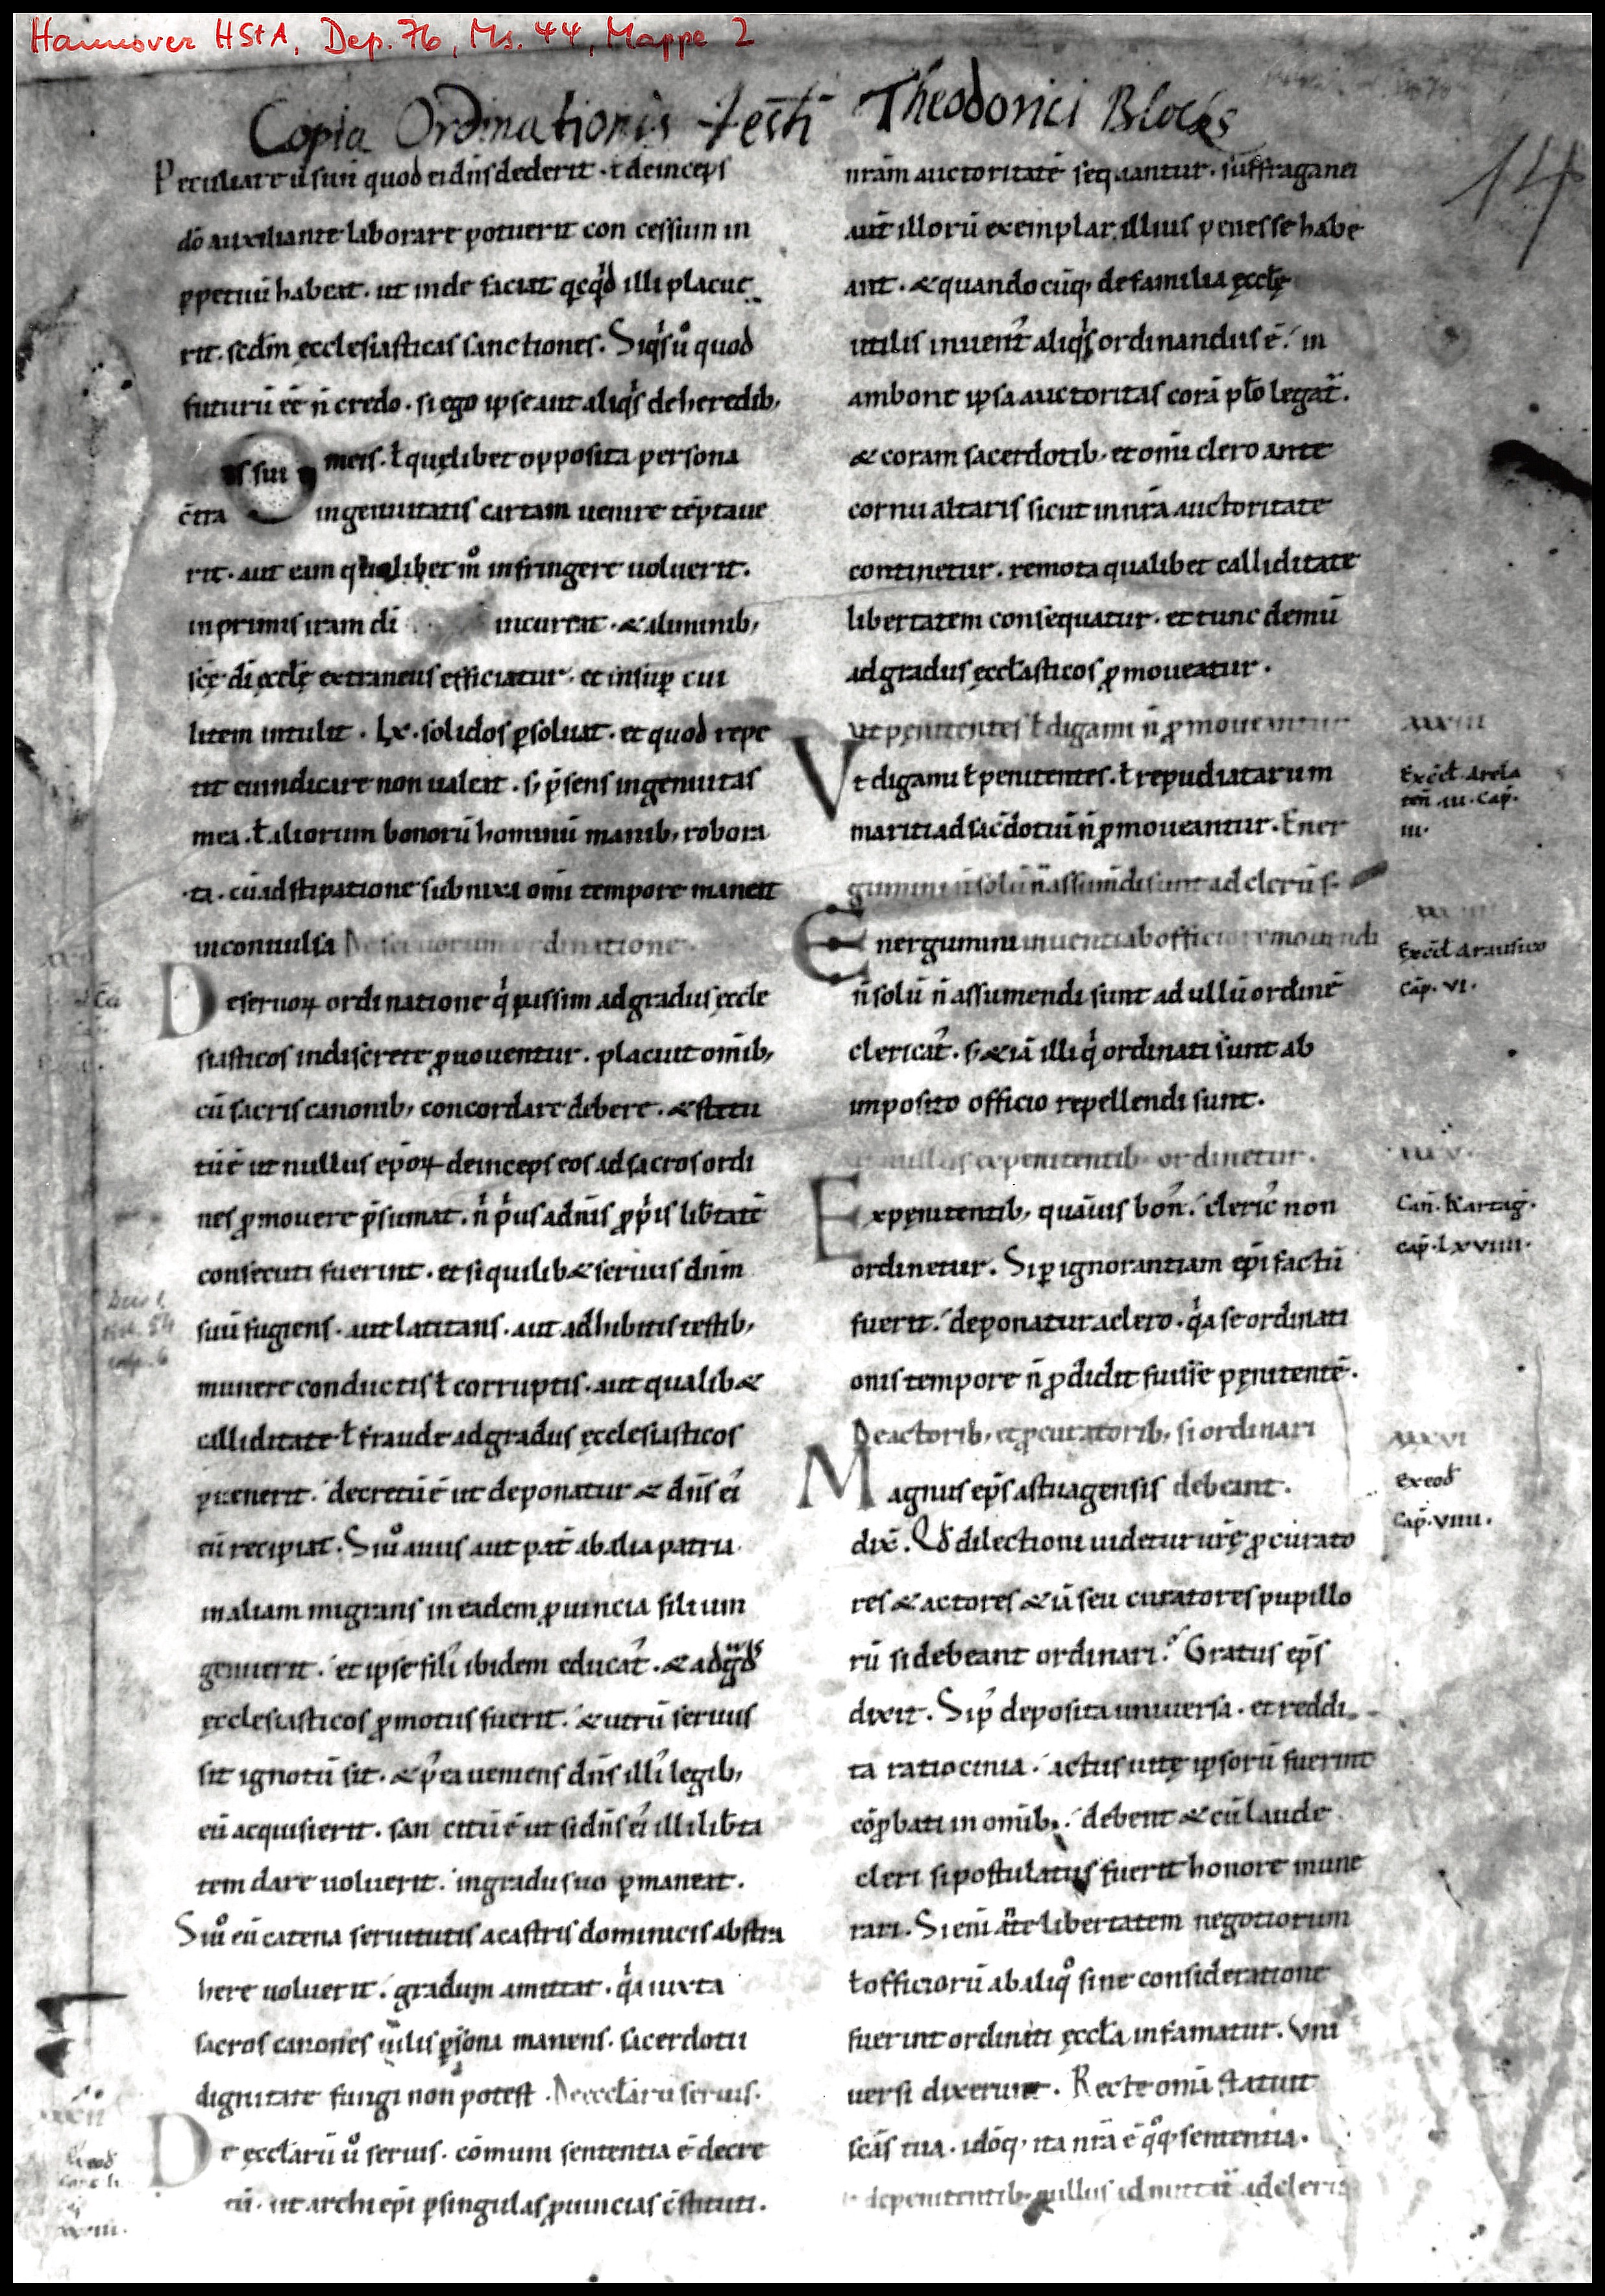 Hannover HStA, Dep. 76, Ms. 44, Mappe 2
Copia Ordinationis testi Theodorici Blocks
14
Peculiare ū suū quod ei dn̄s dederit · ł deinceps
dō auxiliante laborare potuerit con cessum in
ꝑpetuū habeat. ut inde faciat qcq̇d illi placue
rit. scdm̄ ęcclesiasticas sanctiones. Siqͥs uͦ quod
futurū eē n̄ credo. si ego ipse aut aliqͥs de heredib;
meis. ł quęlibet opposita persona
c̄tra ingenuitatis cartam uenire tēptaue
rit. aut eam qualibet mͦ infringere uoluerit.
inprimis iram dī incurrat. & a liminib;
scę dī ęcclę extraneus efficiatur. et insuꝑ cui
litem intulit. Lx. solidos ꝑsoluat. et quod repe
tit euindicare non ualeat. s; p̄sens ingenuitas
mea. ł aliorum bonorū hominū manib; robora
ta. cū adstipatione subnixa omi tempore maneat
inconuulsa De seruorum ordinatione.
De seruoꝝ ordinatione qͥ passim ad gradus ęccle
siasticos indiscrete ꝓmouentur. placuit omib;
cū sacris canonib; concordare debere. & statu
tū ē ut nullus epoꝝ deinceps eos ad sacros ordi
nes ꝓmouere p̄sumat. n̄ pͥus a dn̄is ꝓpͥis lib̄tatē
consecuti fuerint. et si quilib& seruus dn̄m
suū fugiens. aut latitans. aut adhibitis testib;
munere conductis ł corruptis. aut qualib&
calliditate ł fraude ad gradus ęcclesiasticos
ꝑuenerit. decretū ē ut deponatur & dn̄s ei᾽
eū recipiat. Si uͦ auus aut pat̄ ab alia patria
in aliam migrans in eadem ꝓuincia filium
genuerit. et ipse fili᾽ ibidem educat᾽. & ad gͣdͣs
ęcclesiasticos ꝓmotus fuerit. & utrū seruus
sit ignotū sit. & p᾽ea ueniens dn̄s illi᾽ legib;
eū acquisierit. san citū ē ut si dn̄s ei᾽ illi lib̄ta
tem dare uoluerit. in gradu suo ꝑmaneat.
Si uͦ eū catena seruitutis a castris dominicis abstra
here uoluerit. gradum amittat. qͥa iuxta
sacros canones uilis ꝑsona manens. sacerdotii
dignitate fungi non potest. De eccłarū seruis.
De ęccłarū uͦ seruis. cōmuni sententia ē decre
tū. ut archiepi ꝑ singulas ꝓuincias c̄stituti.
nrām auctoritatē sequantur. suffraganei
aūt illorū exemplar illius penes se habe
ant. & quandocūq; de familia ęccłę
utilis inuent᾽ aliqͥs ordinandus ē. in
ambone ipsa auctoritas corā pl̄o legat̄.
& coram sacerdotib; et omi clero ante
cornu altaris sicut in nrā auctoritate
continetur. remota qualibet calliditate
libertatem consequatur. et tunc demū
ad gradus ęccłasticos ꝓmoueatur.
Ut pęnitentes ł digami n̄ ꝓmoueantur
Vt digami ł penitentes. ł repudiatarum
mariti ad sac̄dotiū n̄ ꝓmoueantur. Ener
gumini n̄ solū n̄ assumdi sunt ad clerū s.
Energumini inuenti ab officio remouendi
n̄ solū n̄ assumendi sunt ad ullū ordinē
clericat᾽. s; & iā illi qͥ ordinati sunt ab
imposito officio repellendi sunt.
Ut nullus ex penitentib; ordinetur.
Ex pęnitentib; quāuis bon᾽. cleric᾽ non
ordinetur. Si ꝑ ignorantiam epī factū
fuerit. deponatur a clero. qͥa se ordinati
onis tempore n̄ ꝓdidit fuisse pęnitentē.
De actorib; et ꝓcuratorib; si ordinari
Magnus eps̄ astuagensis debeant.
dix̄. Qd̄ dilectioni uidetur urę̄ ꝓcurato
res & actores & iā seu curatores pupillo
rū si debeant ordinari? Gratus eps̄
dixit. Si p᾽ deposita uniuersa. et reddi
ta ratiocinia. actus uitę ipsorū fuerint
cōꝓbati in omib;. debent & cū laude
cleri si postulatus fuerit honore mune
rari. Si eni ante libertatem negotiorum
ł officiorū ab aliqͦ sine consideratione
fuerint ordinati ęccła infamatur. Vni
uersi dixerunt. Recte omia statuit
scās tua. idōq; ita nrā ē qͦq; sententia.
de penitentib; nullus admittat̄ ad cleris
XXXIII
Ex cc̄l arela
ten̄ III. Cap̄.
III.
Ex cc̄l Arausico
Cap̄. VI.
Can̄. Kartaḡ.
cap̄. LXVIIII.
XXXVI
Ex eod̄
Cap̄. VIIII.